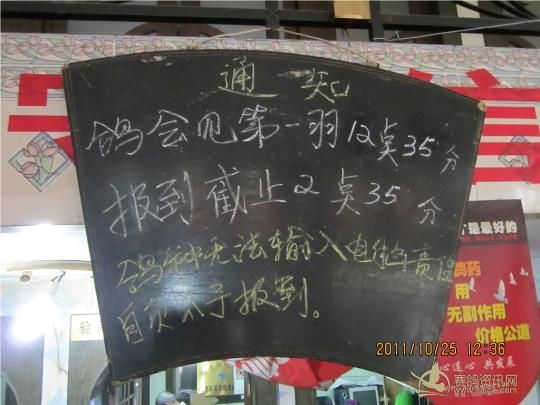 通知
鸽会见第一羽12点35分
报到截止2点35分
鸽钟无法输入电脑车责任
自负不予报到。
才是最好的
鸽药
用
无副作用
价格公道
心连心 共发展
验
2011/10/25 12:36
赛鸽资讯网